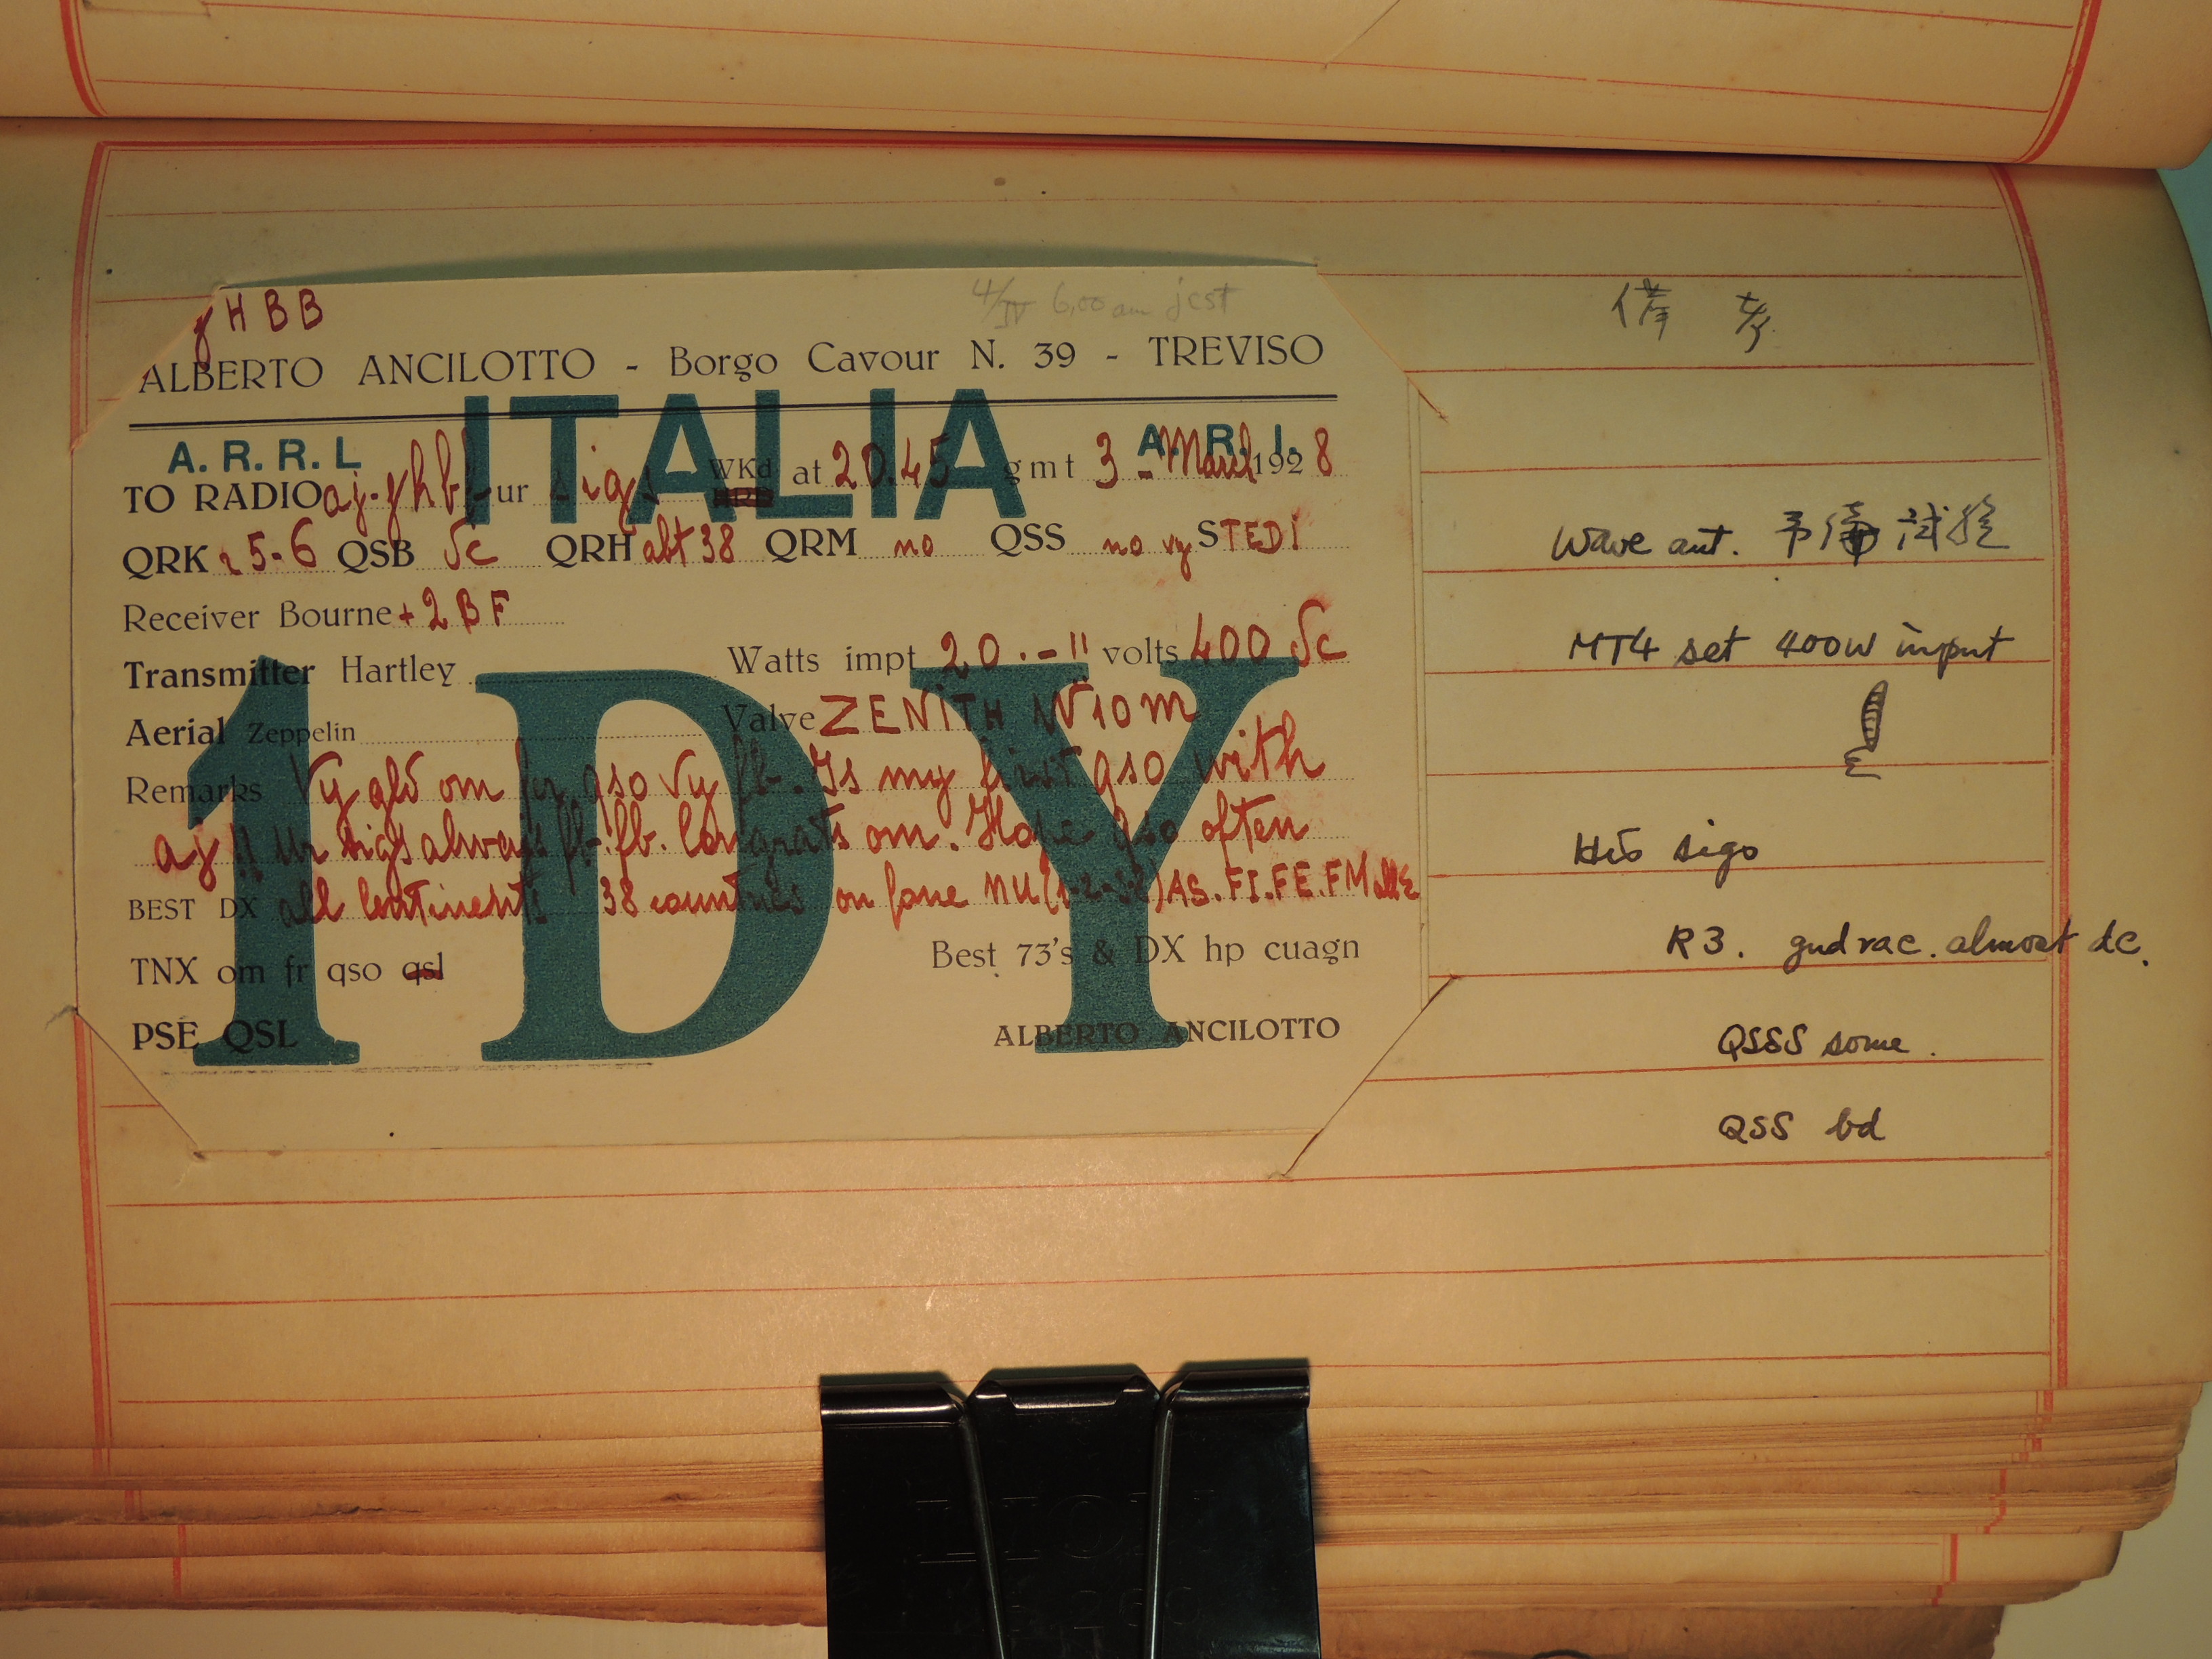 JHBB
4/IV 6,00 am jcst
ALBERTO ANCILOTTO - Borgo Cavour N. 39 - TREVISO
ITALIA
A. R. R. L A. R. I.
TO RADIO aj-jhbb ur sigs WKd at 20.45 gmt 3 - March 1928
QRK r5-6 QSB dc QRH abt 38 QRM no QSS no vy STEDI
Receiver Bourne + 2 BF
Transmitter Hartley Watts impt 20.-!! volts 400 dc
Aerial Zeppelin Valve ZENITH W10M
1DY
Remarks Vy gld om fr qso vy fb. Is my first qso with
aj!! Ur sigs always fb! fb. Congrats om. Hope qso often
BEST DX all continents 38 countries on fone NU(1-2-3-8) AS.FI.FE.FM
TNX om fr qso qsl Best 73's & DX hp cuagn
PSE QSL ALBERTO ANCILOTTO
備考
Wave ant. 予備試験
MT4 set 400W input
His sigs
R3. gud rac. almost dc.
QSSS some.
QSS bd
LION